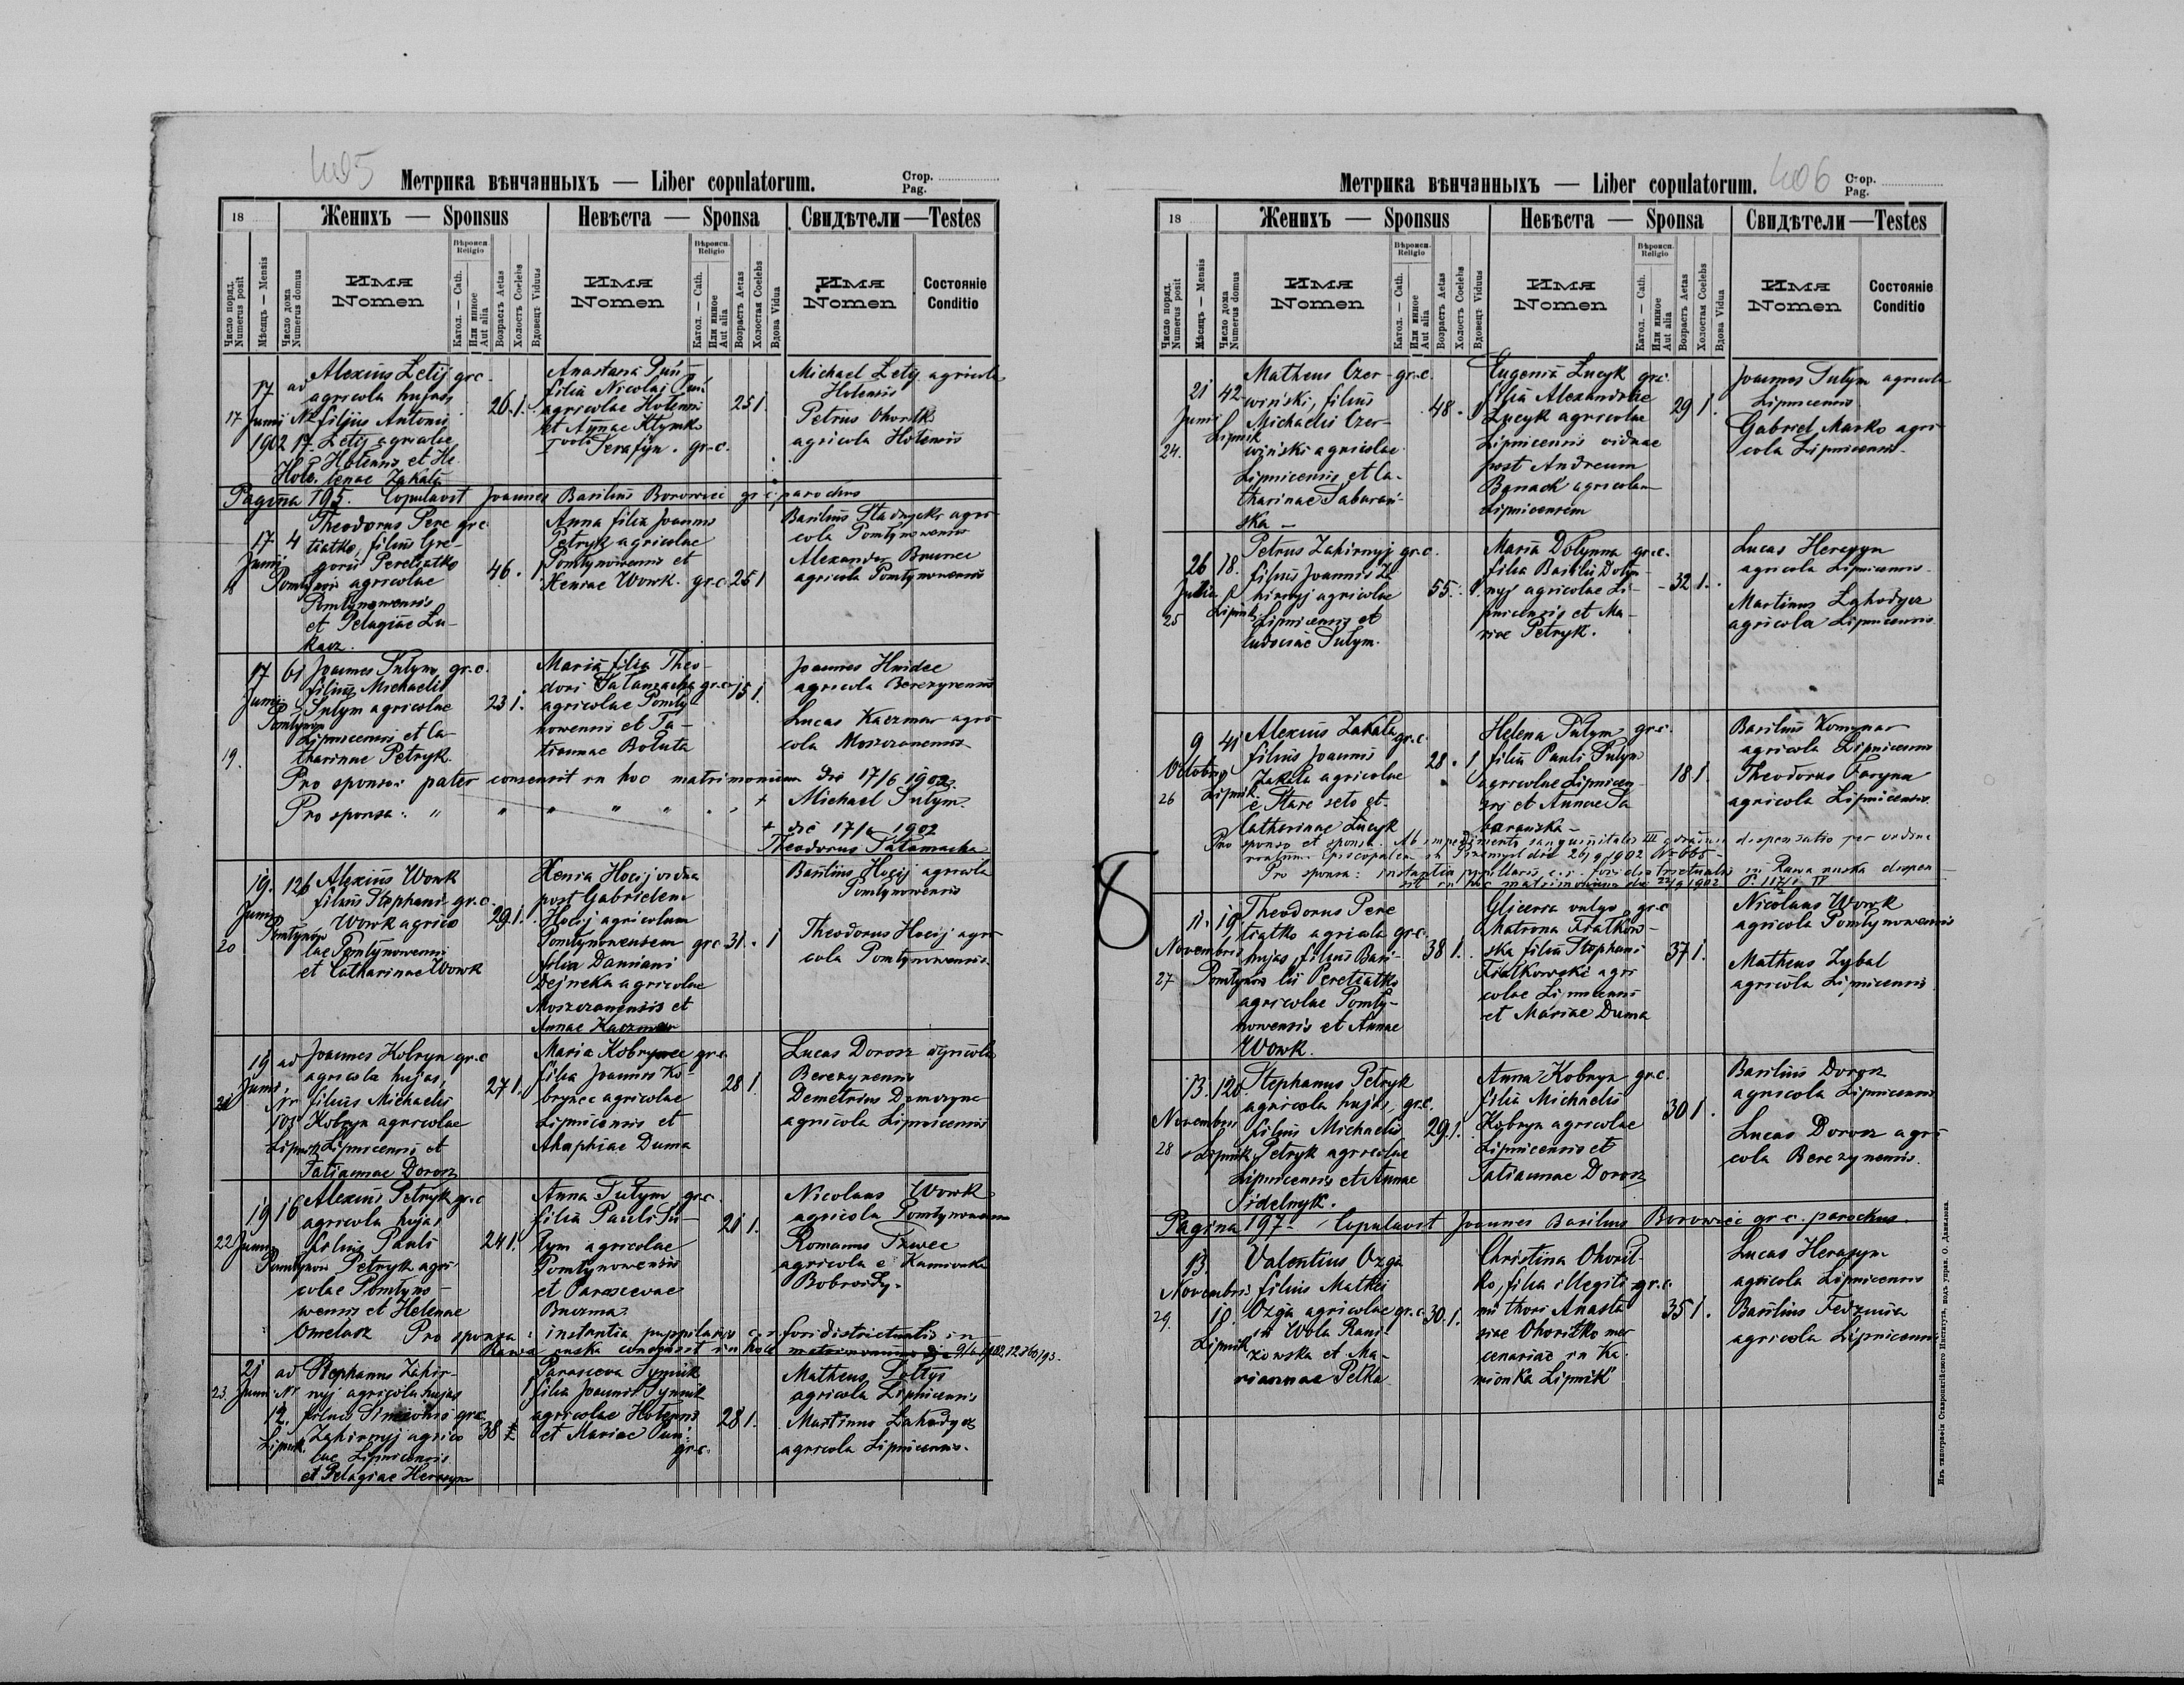 405
Метрика вѣнчанныхъ — Liber copulatorum.
Стор.
Pag.
18
Женихъ — Sponsus
Невѣста — Sponsa
Свидѣтели — Testes
Число поряд.
Numerus posit
Мѣсяцъ — Mensis
Число дома
Numerus domus
Имя
Nomen
Вѣроисп.
Religio
Катол. — Cath.
Или инное
Aut alia
Возрастъ Aetas
Холостъ Coelebs
Вдовецъ Viduus
Имя
Nomen
Вѣроисп.
Religio
Катол. — Cath.
Или инное
Aut alia
Возрастъ Aetas
Холостая Coelebs
Вдова Vidua
Имя
Nomen
Состояніе
Conditio
17
17 Junii
1902
ad
Nr
17
Alexius Letij gr.c.
agricola hujas
filius Antonii
Letij agricolae
Hotensis et He
lenae Zakala
26 1.
Anastasia
filia Nicolai
agricolae Hotensis
et Annae Klymko
Serafyn. gr.c.
25 1
Michael Letij agricola
Hotensis
Petrus Ohoritko
agricola Hotensis
Pagina 195. Copulavit Joannes Basilius Borowiec gr.c. parochus
17
Junii
4
Theodorus Pere gr.c
tiatko, filius Gre-
gorii Peretiatko
agricolae
Pomlynowensis
et Pelagiae Lu-
kacz.
46. 1
Anna filia Joannis
Petryk agricolae
Pomlynowensis et
Xeniae Wowk. gr.c. 25 1
Basilius Stadnycki agri-
cola Pomlynowensis
Alexander Brunec
agricola Pomlynowensis
17 61
Junii
19.
Joannes Sulym gr.c.
filius Michaelis
Sulym agricolae
Lipnicensis et Ca-
tharinae Petryk.
23 1.
Maria filia Theo-
dori Salamacha gr.c. 15 1.
agricolae Pomly-
nowensis et Ta-
tiannae Boluta
Joannes Hnidec
agricola Berezynensis
Lucas Kaczmar agri-
cola Moszczanensis
Pro sponso: pater consensit in hoc matrimonium die 17/6 1902.
+ Michael Sulym
Pro sponsa: " " " " "
+ die 17/6 1902
Theodorus Salamacha
19. 126
Junii
20
Alexius Wowk
filius Stephani gr.c.
Wowk agrico
lae Pomlynowensis
et Catharinae Wowk
29 1.
Xenia Hocij vidua
post Gabrielem
Hocij agricolam
Pomlynowensem gr.c 31. 1
filia Damiani
Dejneka agricolae
Moszczanensis et
Annae Kaczmar
Basilius Hocij agricola
Pomlynowensis
Theodorus Hocij agri-
cola Pomlynowensis
19 ad
Junii
21 Nr
105
Lipnik
Joannes Kobryn gr.c
agricola hujas,
filius Michaelis
Kobryn agricolae
Lipnicensis et
Tatiannae Dorosz
27 1.
Maria Kobrynec gr.c.
filia Joannis Ko-
brynec agricolae
Lipnicensis et
Ahaphiae Duma
28 1
Lucas Dorosz agricola
Berezynensis
Demetrius
agricola Lipnicensis
19 16
22 Junii
Alexius Petryk gr.c
agricola hujas
filius Pauli
Petryk agri-
colae Pomlyno-
wensis et Helenae
Omelasz
24 1.
Anna Sulym gr.c.
filia Pauli Su-
lym agricolae
Pomlynowensis
et Parascevae
21 1.
Nicolaus Wowk
agricola Pomlynowensis
Romanus
agricola e Kamionka
Pro sponsa: instantia pupilaris c.r. fori districtualis in
Rawa ruska condonavit in hoc matrimonium die
21 ad
23 Junii Nr
12.
Lipnik.
Stephanus Zahir-
nyj agricola hujas
filius Simeonis gr.c
Zahirnyj agrico
lae Lipnicensis
et Pelagiae Herasym
38
Parasceva
filia Joannis
agricolae Hotensis
et Mariae
gr.c.
28 1.
Matheus Soltys
agricola Lipnicensis
Martinus Lahodycz
agricola Lipnicensis.
406
Метрика вѣнчанныхъ — Liber copulatorum.
Стор.
Pag.
18
Женихъ — Sponsus
Невѣста — Sponsa
Свидѣтели — Testes
Число поряд.
Numerus posit
Мѣсяцъ — Mensis
Число дома
Numerus domus
Имя
Nomen
Вѣроисп.
Religio
Катол. — Cath.
Или инное
Aut alia
Возрастъ Aetas
Холостъ Coelebs
Вдовецъ Viduus
Имя
Nomen
Вѣроисп.
Religio
Катол. — Cath.
Или инное
Aut alia
Возрастъ Aetas
Холостая Coelebs
Вдова Vidua
Имя
Nomen
Состояніе
Conditio
21 42
Junii
Lipnik
24.
Matheus Czer- gr.c.
wiński, filius
Michaelis Czer-
wiński agricolae
Lipnicensis et Ca-
tharinae Sabarań-
ska —
48. 1
Eugenia Lucyk gr.c.
filia Alexandri
Lucyk agricolae
Lipnicensis viduae
post Andream
Banach agricolam
Lipnicensem
29 1.
Joannes Sulym agricola
Lipnicensis
Gabriel Marko agri-
cola Lipnicensis.
26 18.
Lipnik
25
Petrus Zahirnyj gr.c.
filius Joannis Za
hirnyj agricolae
Lipnicensis et
Eudociae Sulym.
55.
Maria Dolynna gr.c.
filia Basilii Dolyn-
nyj agricolae Li-
pnicensis et Ma-
riae Petryk.
32 1.
Lucas Herasym
agricola Lipnicensis.
Martinus Lahodycz
agricola Lipnicensis
9 41
Octobris
Lipnik
26
Alexius Zakala gr.c.
filius Joannis
Zakala agricolae
e Stare seło et
Catharinae Lucyk
28. 1
Helena Sulym gr.c.
filia Pauli Sulym
agricolae Lipnicen-
sis et Annae Sa
barańska —
18 1.
Basilius Komynar
agricola Lipnicensis
Theodorus Faryna
agricola Lipnicensis.
Pro sponso et sponsa. Ab impedimento sanquinitatis III gradus dispensatio per
Pro sponsa: instantia pupillaris c.r. fori districtualis in Rawa ruska
11. 19
Novembris
27
Theodorus Pere
tiatko agricola gr.c.
hujas, filius Basi-
lii Peretiatko
agricolae Pomly-
nowensis et Annae
Wowk.
38 1.
Gliceria vulgo gr.c
Matrona Fialkow-
ska filia Stephani
Fialkowski agri
colae Lipnicensis
et Mariae Duma
37 1.
Nicolaus Wowk
agricola Pomlynowensis
Matheus Zybal
agricola Lipnicensis
13. 120.
Novembris
28 Lipnik
Stephanus Petryk
agricola hujas, gr.c.
filius Michaelis
Petryk agricolae
Lipnicensis et Annae
Sidelnyk.
29 1.
Anna Kobryn gr.c.
filia Michaelis
Kobryn agricolae
Lipnicensis et
Tatiannae Dorosz
30 1.
Basilius Dorosz
agricola Lipnicensis
Lucas Dorosz agri-
cola Berezynensis.
Pagina 197. Copulavit Joannes Basilius Borowiec gr.c. parochus.
13.
Novembris
29. 18.
Lipnik
Valentius Ozga
filius Mathei
Ozga agricolae gr.c. 30. 1.
in Wola Rani-
żowska et Ma-
riannae Pelka
Christina Ohorit-
ko, filia illegiti- gr.c.
mi thori Anasta
siae Ohoritko mer
cenariae in Ka-
mionka Lipnik
35 1.
Lucas Herasym
agricola Lipnicensis
Basilius
agricola Lipnicensis
8
Изъ типографіи Ставропигійского Института, подъ управ. О. Данилюка.